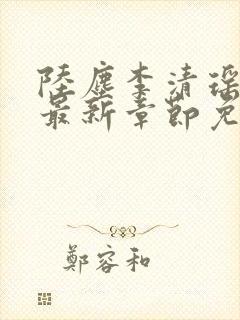 陸塵李清瑶
最新章節免
鄭容和